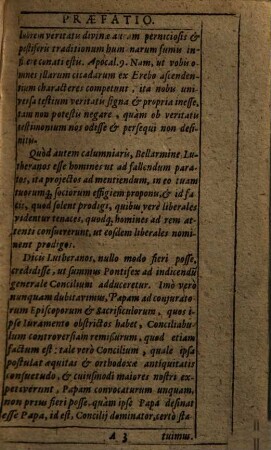 PRÆFATIO.
veritatis divinæ perniciosis &
pestiferis traditionum humanarum fumis
conati estu. Apocal. 9. Nam, ut vobis
omnes illarum cicadarum ex Erebo ascenden-
tium characteres competunt, ita nobis uni-
versa testium veritatis signa & propria inesse,
tam non potestis negare, quàm ob veritatis
testimonium nos odisse & persequi non desi-
nitis.
Quòd autem calumniaris, Bellarmine, Lu-
theranos esse homines ut ad fallendum para-
tos, ita projectos ad mentiendum, in eo tuam
tuorumq́, sociorum effigiem proponis, & id fa-
cis, quod solent prodigi, quibus verè liberales
videntur tenaces, quodq́, homines ad rem at-
tenti consueverunt, ut eosdem liberales nomi-
nent prodigos.
Dicis Lutheranos, nullo modo fieri posse,
credidisse, ut summus Pontifex ad indicendū
generale Concilium adduceretur. Imò verò
nunquam dubitavimus, Papam ad conjurato-
rum Episcoporum & sacrificulorum, quos i-
pse juramento obstrictos habet, Conciliabu-
lum controversiam remissurum, quod etiam
factum est: tale verò Concilium, quale ipsa
postulat æquitas & orthodoxæ antiquitatis
consuetudo, & cuiusmodi maiores nostri ex-
petiverunt, Papam convocaturum unquam,
non prius fieri posse, quàm ipse Papa desinat
esse Papa, id est, Concilij dominator, certò sta-
A 3 tuimus.